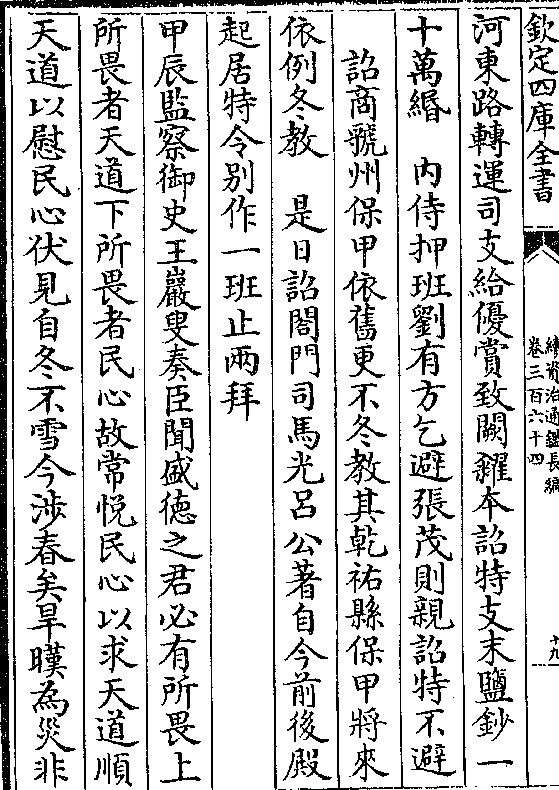 欽定四庫全書
續資治通鑑長編
卷三百六十四
十九
河東路轉運司支給優賞致闕糴本詔特支末鹽鈔一
十萬緡　内侍押班劉有方乞避張茂則親詔特不避
詔商虢州保甲依舊更不冬教其乾祐縣保甲將來
依例冬教　是日詔閤門司馬光呂公著自今前後殿
起居特令别作一班止兩拜
甲辰監察御史王巖叟奏臣聞盛徳之君必有所畏上
所畏者天道下所畏者民心故常悦民心以求天道順
天道以慰民心伏見自冬不雪今涉春矣旱暵為災非